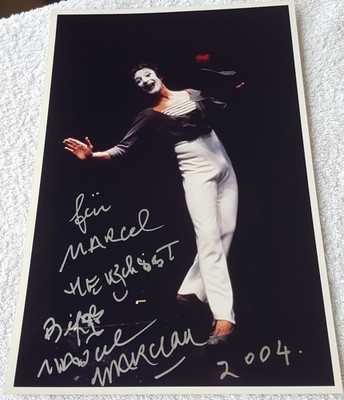 für
MARCEL
HERZlichst
Bip
MARCEL
MARCEAU
2004.